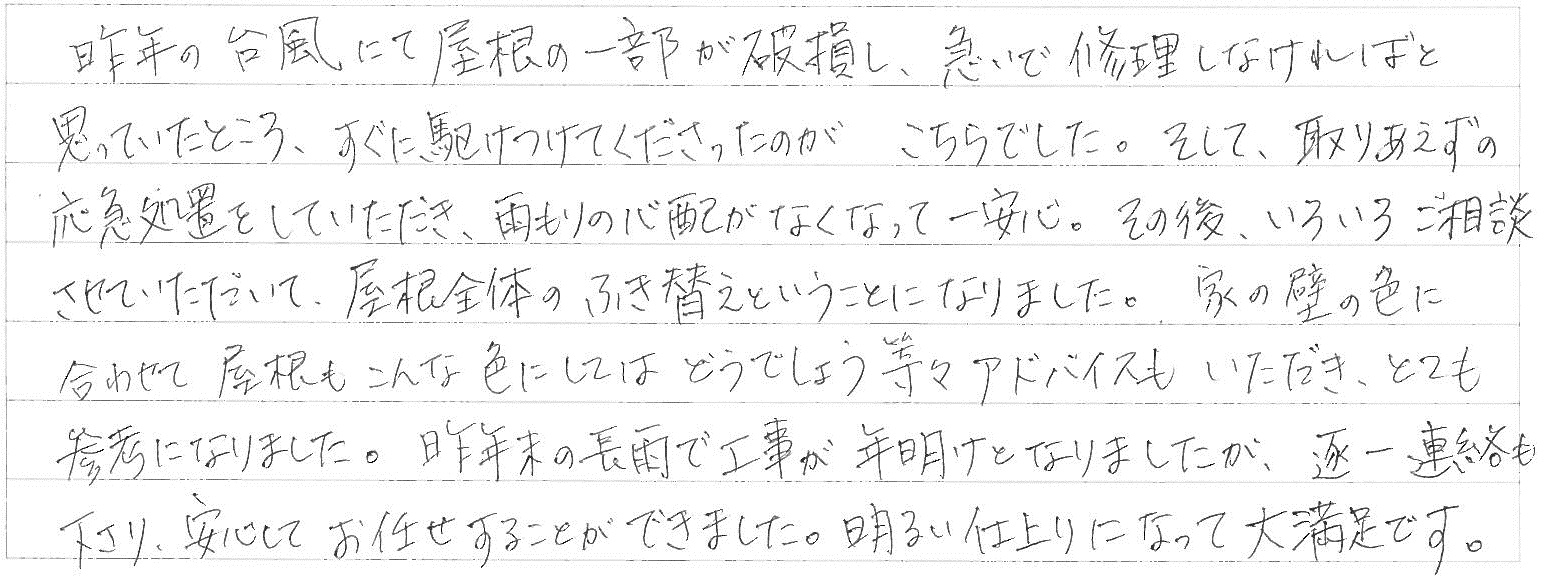 昨年の台風にて屋根の一部が破損し、急いで修理しなければと
思っていたところ、すぐに駆けつけてくださったのが こちらでした。そして、取りあえずの
応急処置をしていただき、雨もりの心配がなくなって一安心。その後、いろいろご相談
させていただいて、屋根全体のふき替えということになりました。家の壁の色に
合わせて屋根もこんな色にしてはどうでしょう等々アドバイスもいただき、とても
参考になりました。昨年末の長雨で工事が年明けとなりましたが、逐一連絡も
下さり、安心してお任せすることができました。明るい仕上りになって大満足です。